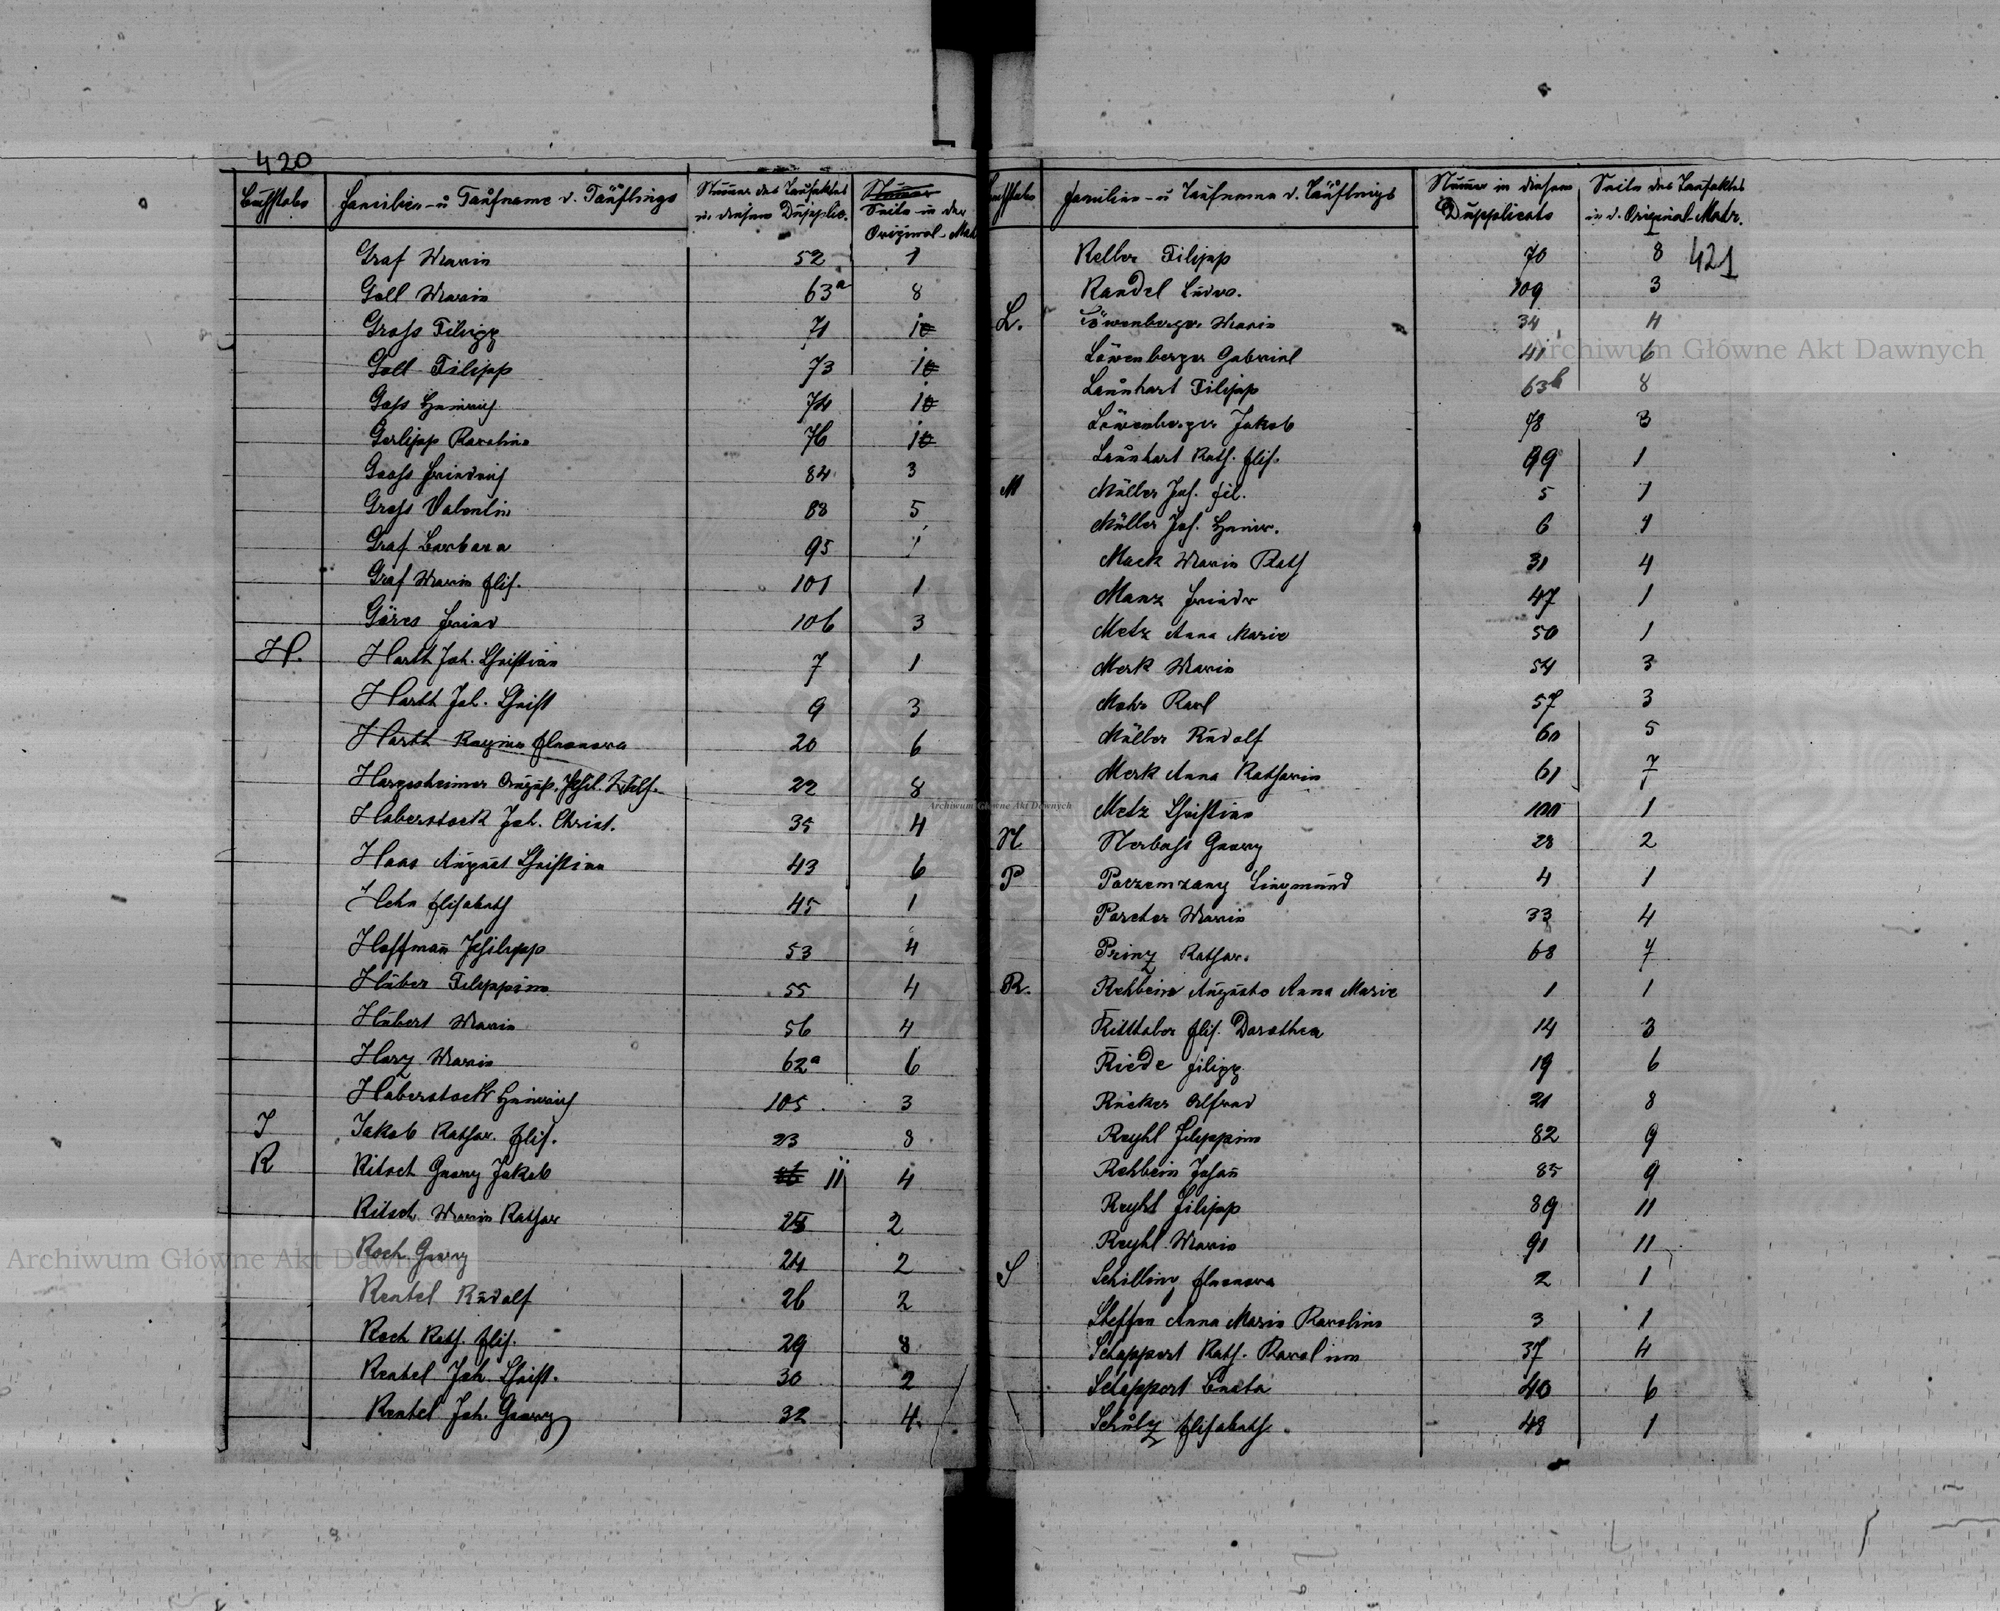 420
Buchstabe Familien- u Taufname d. Täuflings Nummer des Taufaktes in diesem Dupplic. Seite in der Original-Matr.
Graf Maria 52 1
Goll Maria 63a 8
Gross Filipp 71 10
Goll Filipp 73 10
Gass Heinrich 74 10
Gerlipp Karolina 76 10
Gross Friedrich 84 3
Gross Valentin 88 5
Graf Barbara 95 1
Graf Maria Elis. 101 1
Göres Fried 106 3
H. Harth Joh. Christian 7 1
Harth Joh. Christ 9 3
Harth Regina Eleonora 20 6
Hargesheimer August. 22 8
Haberstock Joh. Christ. 35 4
Haas August Christian 43 6
Hehn Elisabeth 45 1
Hoffmañ Philipp 53 4
Huber Filippine 55 4
Hubert Maria 56 4
Harz Maria 62a 6
Haberstock Heinrich 105 3
J Jakob Kathar. Elis. 23 8
K Kitsch Georg Jakob 11 4
Kitsch Maria Kathar 2
Koch Georg 24 2
Kentel Rudolf 26 2
Koch Kath. Elis. 29 8
Kentel Joh. Christ. 30 2
Kentel Joh. Georg 32 4
Buchstabe Familien- u Taufname d. Täuflings Numer in diesem Dupplicate Seite des Taufaktes in d. Original-Matr.
Keller Filipp 70 8 421
Kandel Ludw. 109 3
L. Löwenberger Maria 34 4
Löwenberger Gabriel 41 6
Launhart Filipp 63b 8
Löwenberger Jakob 78 3
Launhart Kath. Elis. 99 1
M Müller Joh. Fil. 5 1
Müller Joh. Heinr. 6 1
Mack Maria Kath 31 4
Manz Friedr 47 1
Metz Anna Marie 50 1
Merk Maria 54 3
Mohr Karl 57 3
Müller Rudolf 60 5
Merk Anna Katharin 61 7
Metz Christian 100 1
N Nerbass Georg 28 2
P Porzemzany Siegmund 4 1
Porcher Maria 33 4
Prinz Kathar. 68 7
R. Rehbein Auguste Anna Marie 1 1
Ritthaber Elis. Dorothea 14 3
Riede Filipp 19 6
Rücker Alfred 21 8
Reyhl Filippine 82 9
Rehbein Johañ 85 9
Reyhl Filipp 89 11
Reyhl Maria 91 11
S Schilling Eleonora 2 1
Steffen Anna Maria Karolina 3 1
Schappert Kath. Karolina 37 4
Schappert Beata 40 6
Schulz Elisabeth 48 1
Archiwum Główne Akt Dawnych
Archiwum Główne Akt Dawnych
Archiwum Główne Akt Dawnych